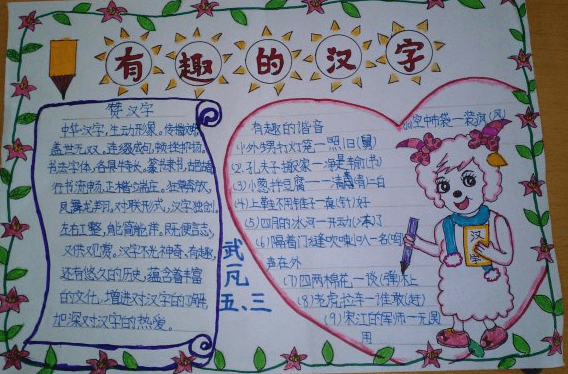 有趣的汉字
赞汉字
中华汉字,生动形象。传播文明,
盖世无双。连缀成句,顿挫抑扬。
书法字体,各具特长。篆书隶书,古朴
行书流畅,正楷端庄。狂草奔放,
凤舞龙翔。对联形式,汉字独创。
左右工整,能简能详。既便言志,
又供观赏。汉字不光神奇、有趣,
还有悠久的历史,蕴含着丰富
的文化,增进对汉字的了解,
加深对汉字的热爱。
武一凡
五、三
有趣的谐音
(1)外甥打灯笼一照旧(舅)
(2)孔夫子搬家一净是输(书)
(3)小葱拌豆腐一一清青二白
(4)上鞋不用锥子一真(针)好
(5)四月的冰河一开动(冻)了
(6)隔着门缝吹喇叭一名(鸣)
声在外
(7)四两棉花一谈(弹)不上
(8)老虎拉车一谁敢(赶)
(9)宋江的军师一无
用
空中布袋一装疯(风)
汉
字